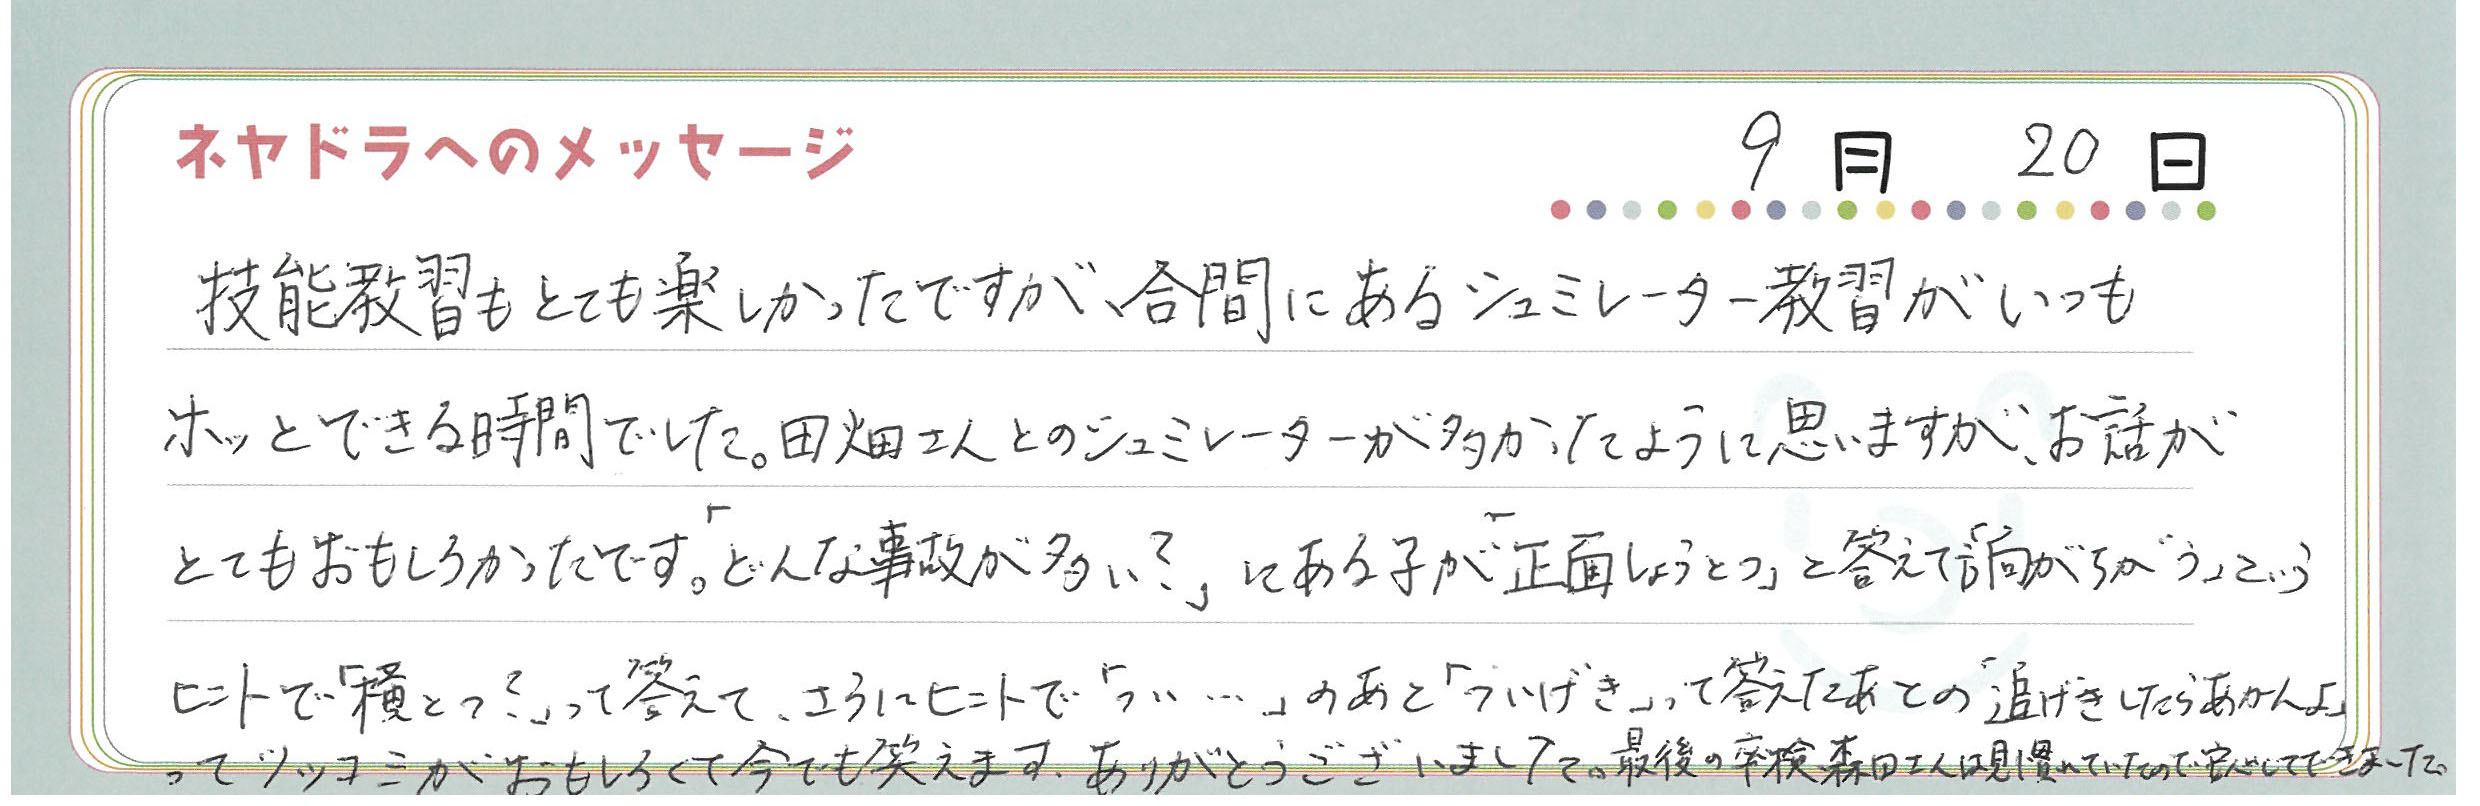 ネヤドラへのメッセージ
9月 20日
技能教習もとても楽しかったですが、合間にあるシュミレーター教習がいつも
ホッとできる時間でした。田畑さんとのシュミレーターが多かったように思いますが、お話が
とてもおもしろかったです。「どんな事故が多い?」にある子が「正面しょうとつ」と答えて「向がちがう」という
ヒントで「横とつ?」って答えて、さらにヒントで「つい…」のあと「ついげき」って答えたあとの「追げきしたらあかんよ」
ってツッコミがおもしろくて今でも笑えます。ありがとうございました。最後の卒検森田さんは見慣れていたので安心してできました。